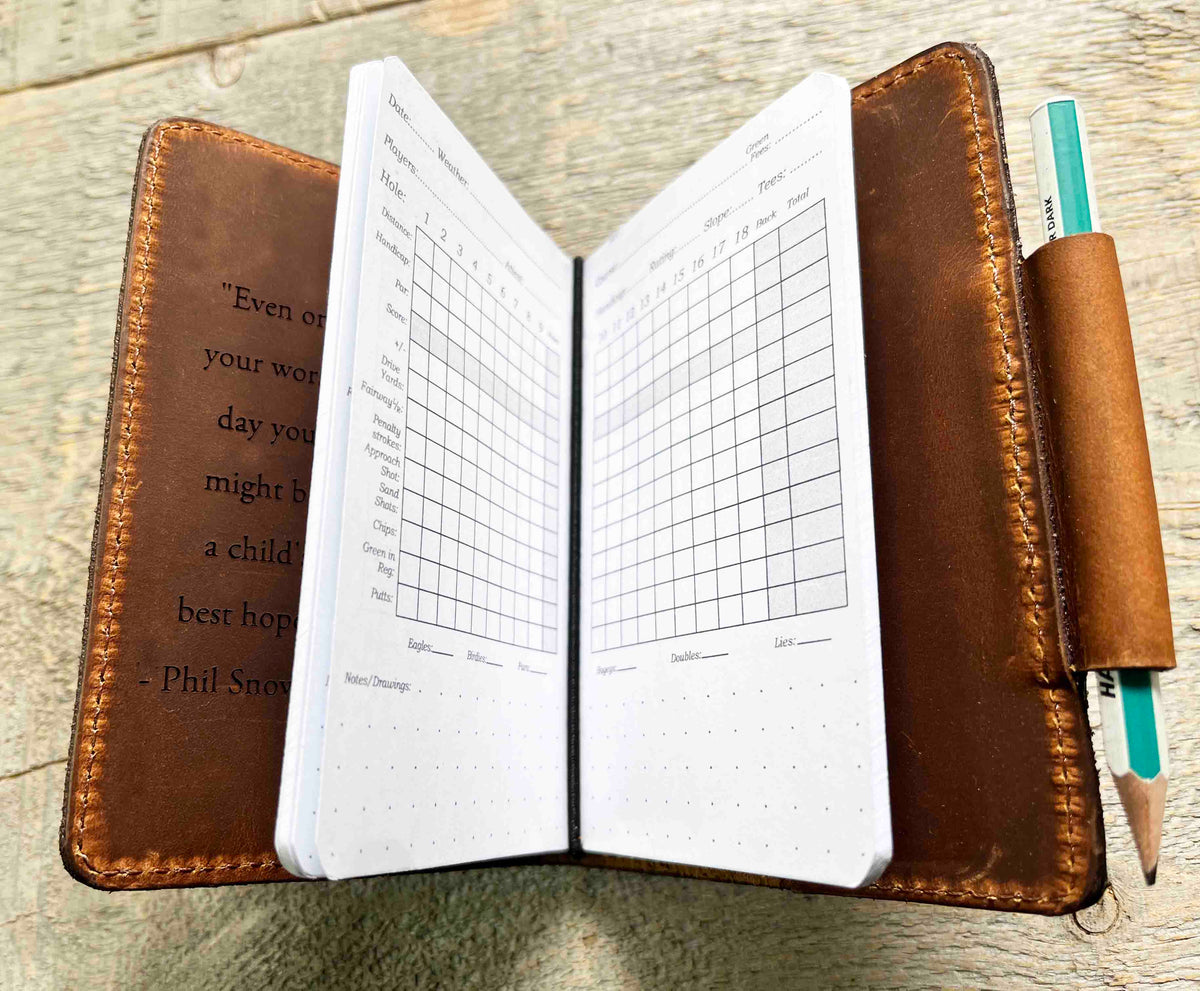 "Even on
your wors
day you
might b
a child'
best hope
- Phil Snow
Date:
Weather:
Players:
Hole: 1 2 3 4 5 6 7 8 9
Distance:
Handicap:
Par:
Score:
+/-
Drive
Yards:
Fairway L/R:
Penalty
strokes:
Approach
Shot:
Sand
Shots:
Chips:
Green in
Reg:
Putts:
Eagles: Birdies: Pars:
Notes/Drawings:
Green
Fees:
Course: Rating: Slope: Tees:
10 11 12 13 14 15 16 17 18 Back Total
Bogeys: Doubles: Lies:
R DARK
HA